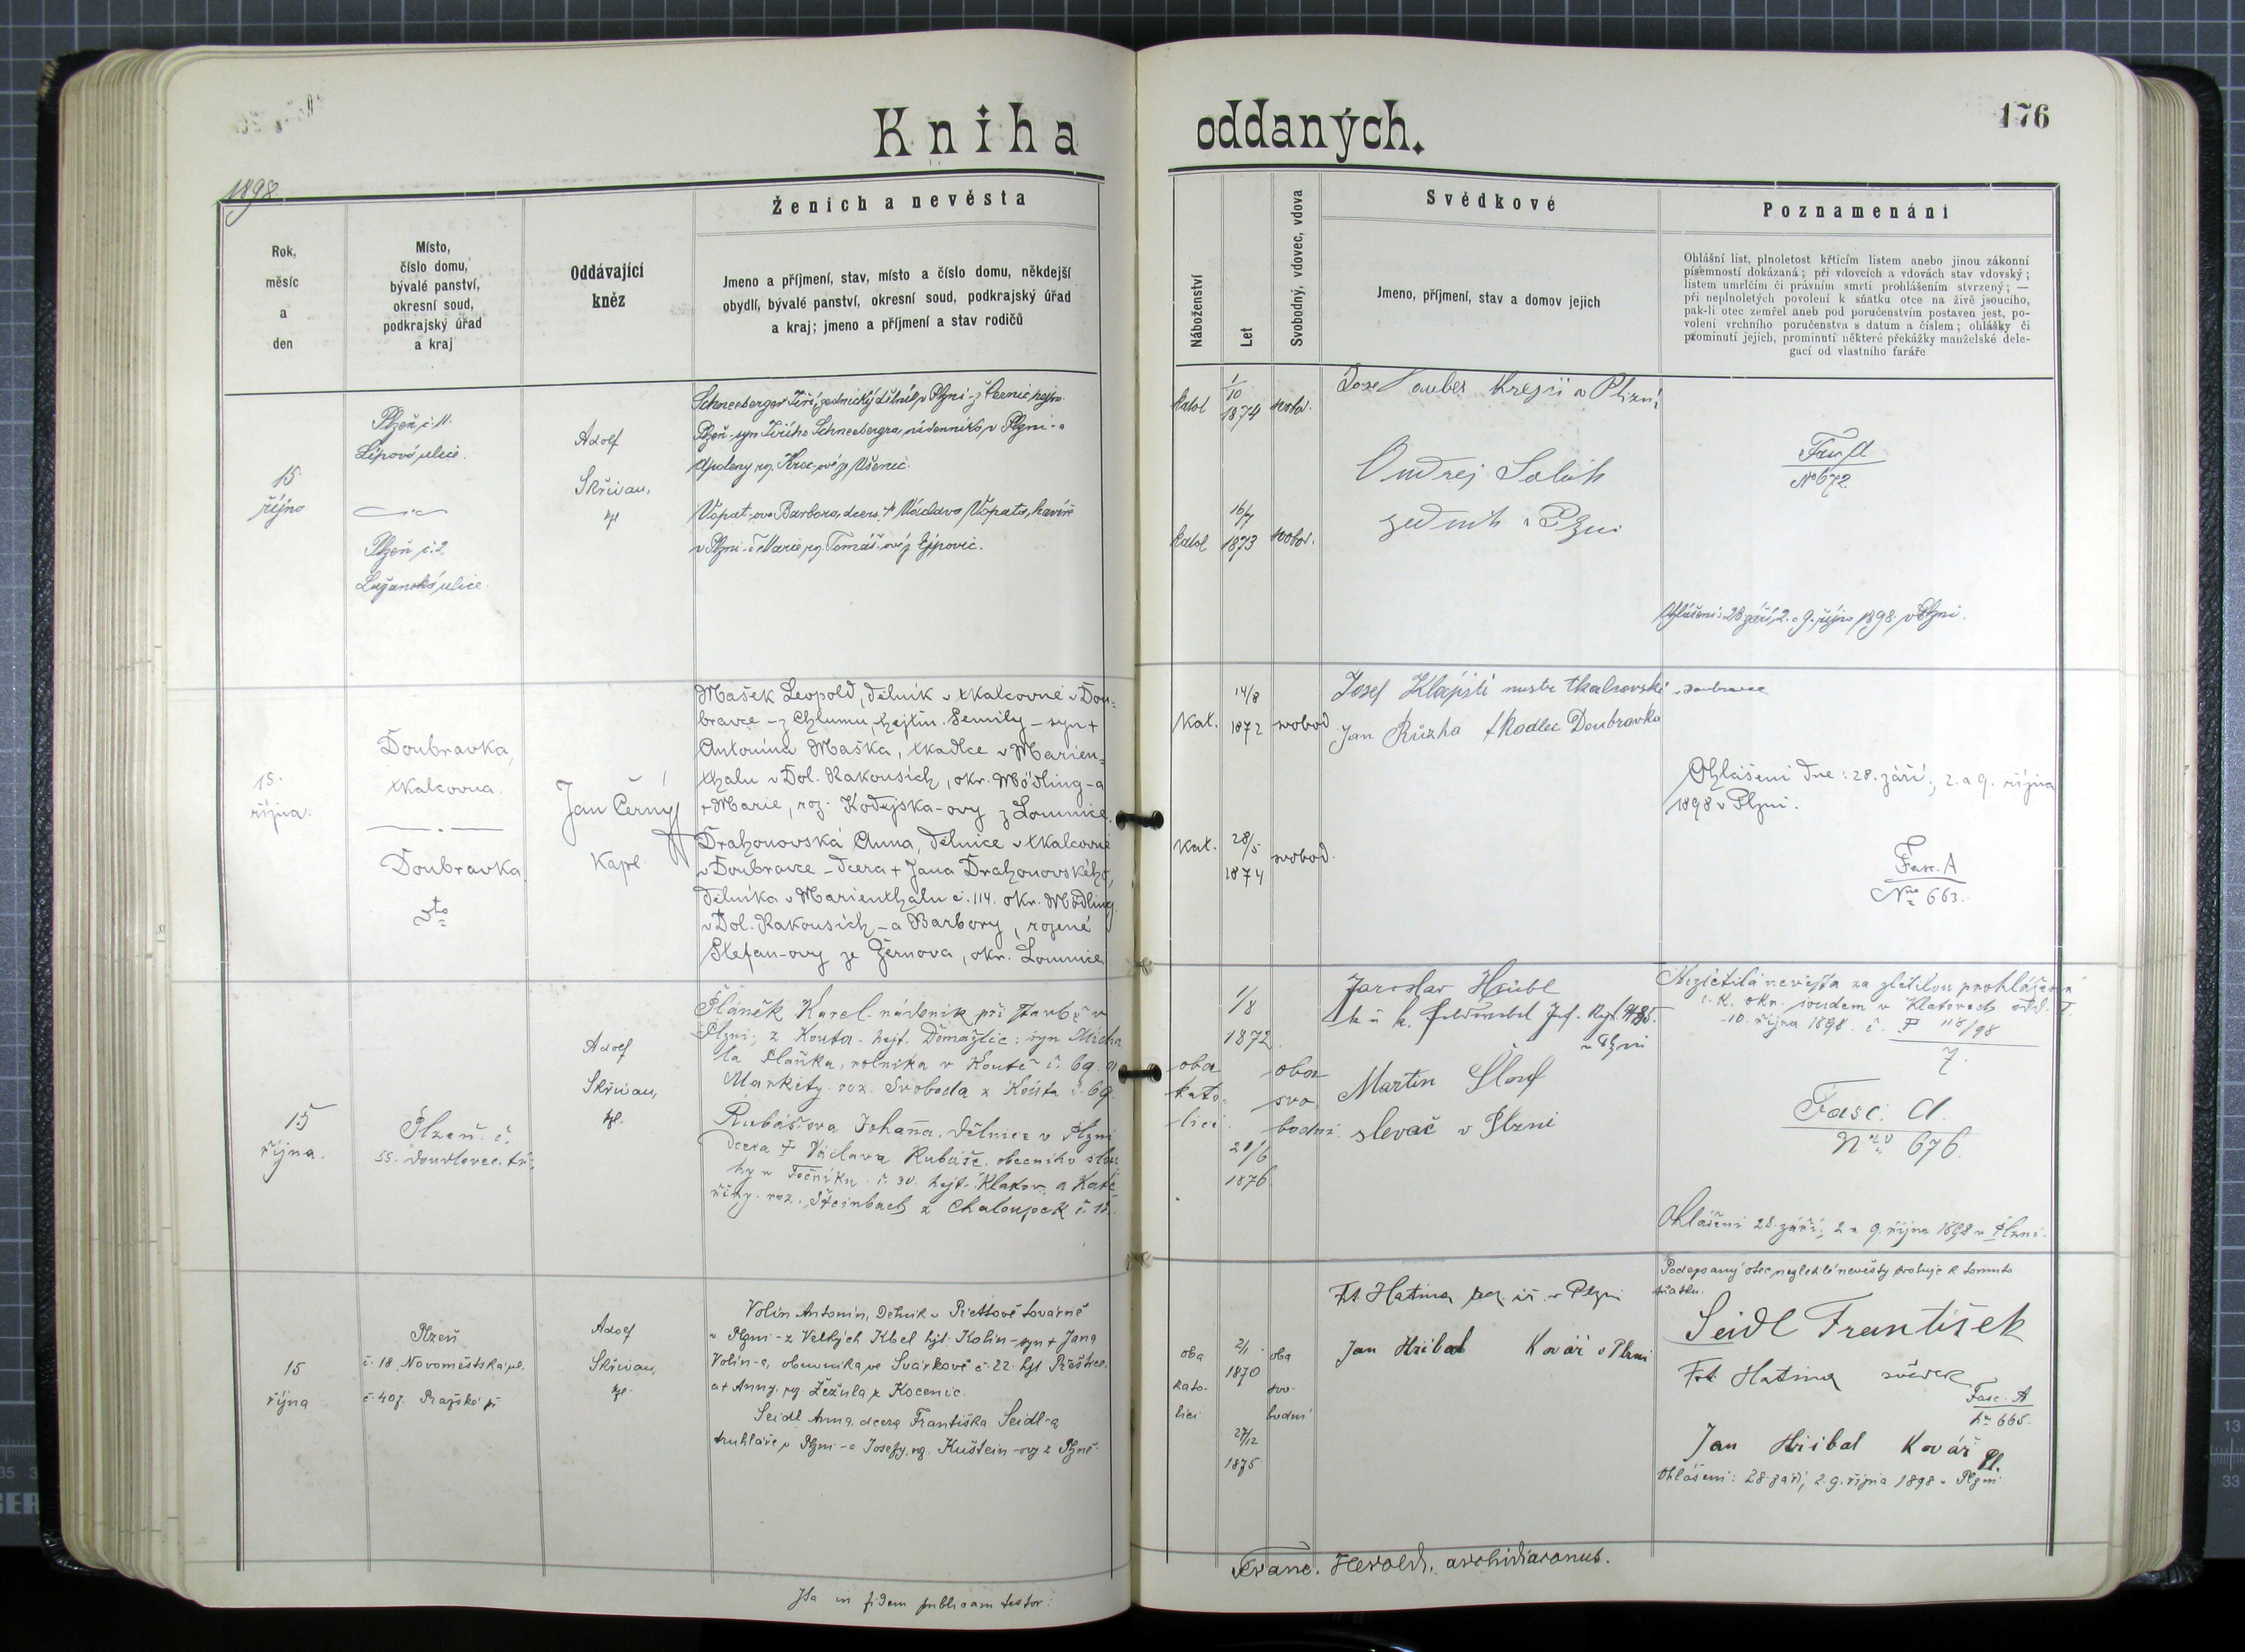 Kniha oddaných.
176
1898
Ženich a nevěsta
Rok,
měsíc
a
den
Místo,
číslo domu,
bývalé panství,
okresní soud,
podkrajský úřad
a kraj
Oddávající
kněz
Jmeno a příjmení, stav, místo a číslo domu, někdejší
obydlí, bývalé panství, okresní soud, podkrajský úřad
a kraj; jmeno a příjmení a stav rodičů
Náboženství
Let
Svobodný, vdovec, vdova
Svědkové
Jmeno, příjmení, stav a domov jejich
Poznamenání
Ohlášní list, plnoletost křticím listem anebo jinou zákonní
písemností dokázaná; při vdovcích a vdovách stav vdovský;
listem umrlčím či právním smrti prohlášením stvrzený; —
při neplnoletých povolení k sňatku otce na živě jsoucího,
pak-li otec zemřel aneb pod poručenstvím postaven jest, po-
volení vrchního poručenstva s datum a číslem; ohlášky či
prominutí jejich, prominutí některé překážky manželské dele-
gací od vlastního faráře
15
října
Plzeň č. 11.
Lipová ulice.
Plzeň č. 2
Lužanská ulice.
Adolf
Skřivan,
kpl
Schneeberger Jiří, zednický dělník v Plzni - z Černic hejtm.
Plzeň - syn Jiřího Schneebergra, nádenníka v Plzni - a
Apoleny roz. Kroc-ové z Ušenic.
Vopat-ova Barbora, dcera † Václava Vopata, havíře
v Plzni - a Marie, roz. Tomáš-ové z Ejpovic.
katol
1/10
1874
svobo.
katol
16/7
1873
svobod.
Krejčí v Plzni
Ondrej
zedník v Plzni
Fasc A
No 672.
Ohlášeni: 28 září, 2. a 9. října 1898. v Plzni.
15.
října.
Doubravka,
tkalcovna.
Doubravka,
dto
Jan Černý
Kapl.
Mašek Leopold, dělník v tkalcovně v Dou-
bravce - z Chlumu, hejtm. Semily - syn +
Antonína Maška, tkadlce v Marien-
thalu v Dol. Rakousích, okr. Mödling - a
+ Marie, roz. Kodejska-ovy z Lomnice.
Drahonovská Anna, dělnice v tkalcovně
v Doubravce - dcera + Jana Drahonovského,
dělníka v Marienthalu č. 114. okr. Mödling
v Dol. Rakousích - a Barbory, rozené
Štefan-ovy ze Žernova, okr. Lomnice.
kat.
14/8
1872
svobod
kat.
28/5
1874
svobod.
Josef Klápště mistr tkalcovský v Doubravce
Jan Růzha tkadlec Doubravka
Ohlášeni dne: 28. září, 2. a 9. října
1898 v Plzni.
Fasc. A
Nro 663.
15
října.
Plzeň. č.
55. doudlevec. tř.
Adolf
Skřivan,
kpl.
Pláněk Karel - nádeník při stavbě v
Plzni, z Kouta - hejt. Domažlic: syn Micha
la Pláňka, rolníka v Koutě č. 69. a
Markéty. roz. Svoboda z Kouta č. 69.
Rubášova Johana. dělnice v Plzni
dcera † Václava Rubáše. obecního slou
hy v Točníku č. 30. hejt. Klatov. a Kate
řiny. roz. Steinbach z Chaloupek č. 12.
oba
kato-
lici.
1/8
1872
21/6
1876
oba
svo.
bodni.
Jaroslav Hübl
k u k. Feldwebel Inf. Regt. 35.
v Plzni
Martin Šlouf
slevač v Plzni
Nezletilá nevěsta za zletilou prohlášena
c. k. okr. soudem v Klatovech odd. I.
10. října 1898. č. P 118/98
7.
Fasc. A.
Nro 676.
Ohlášeni 28. září, 2 a 9. října 1898 v Plzni.
15
října
Plzeň
č. 18. Novoměstská ul.
č. 407. Pražské př
Adolf
Skřivan,
kpl.
Volín Antonín, Dělník v Piettově továrně
v Plzni - z Velkých Kbel hjt. Kolín - syn + Jana
Volín-a, obuvníka ve Svárkově č. 22. hjt Přeštice.
a + Anny. roz. Žežula z Kocenic.
Seidl Anna. dcera Františka Seidl-a
truhláře v Plzni - a Josefy. roz. Kuštein-ovy z Plzně.
oba
kato-
lici
2/1
1870
27/12
1875
oba
svo-
bodni
Frt. Hatina v Plzni
Jan Hřibal Kovář v Plzni
Podepsaný otec nezletilé nevěsty svoluje k tomuto
sňatku.
Seidl Frantíšek
Frt. Hatina svědek
Fasc. A
No 665.
Jan Hřibal Kovář Pl.
Ohlášeni: 28. září, 2. 9. října 1898 v Plzni
Ita in fidem publicam testor:
Franc. Herold, archidiaconus.